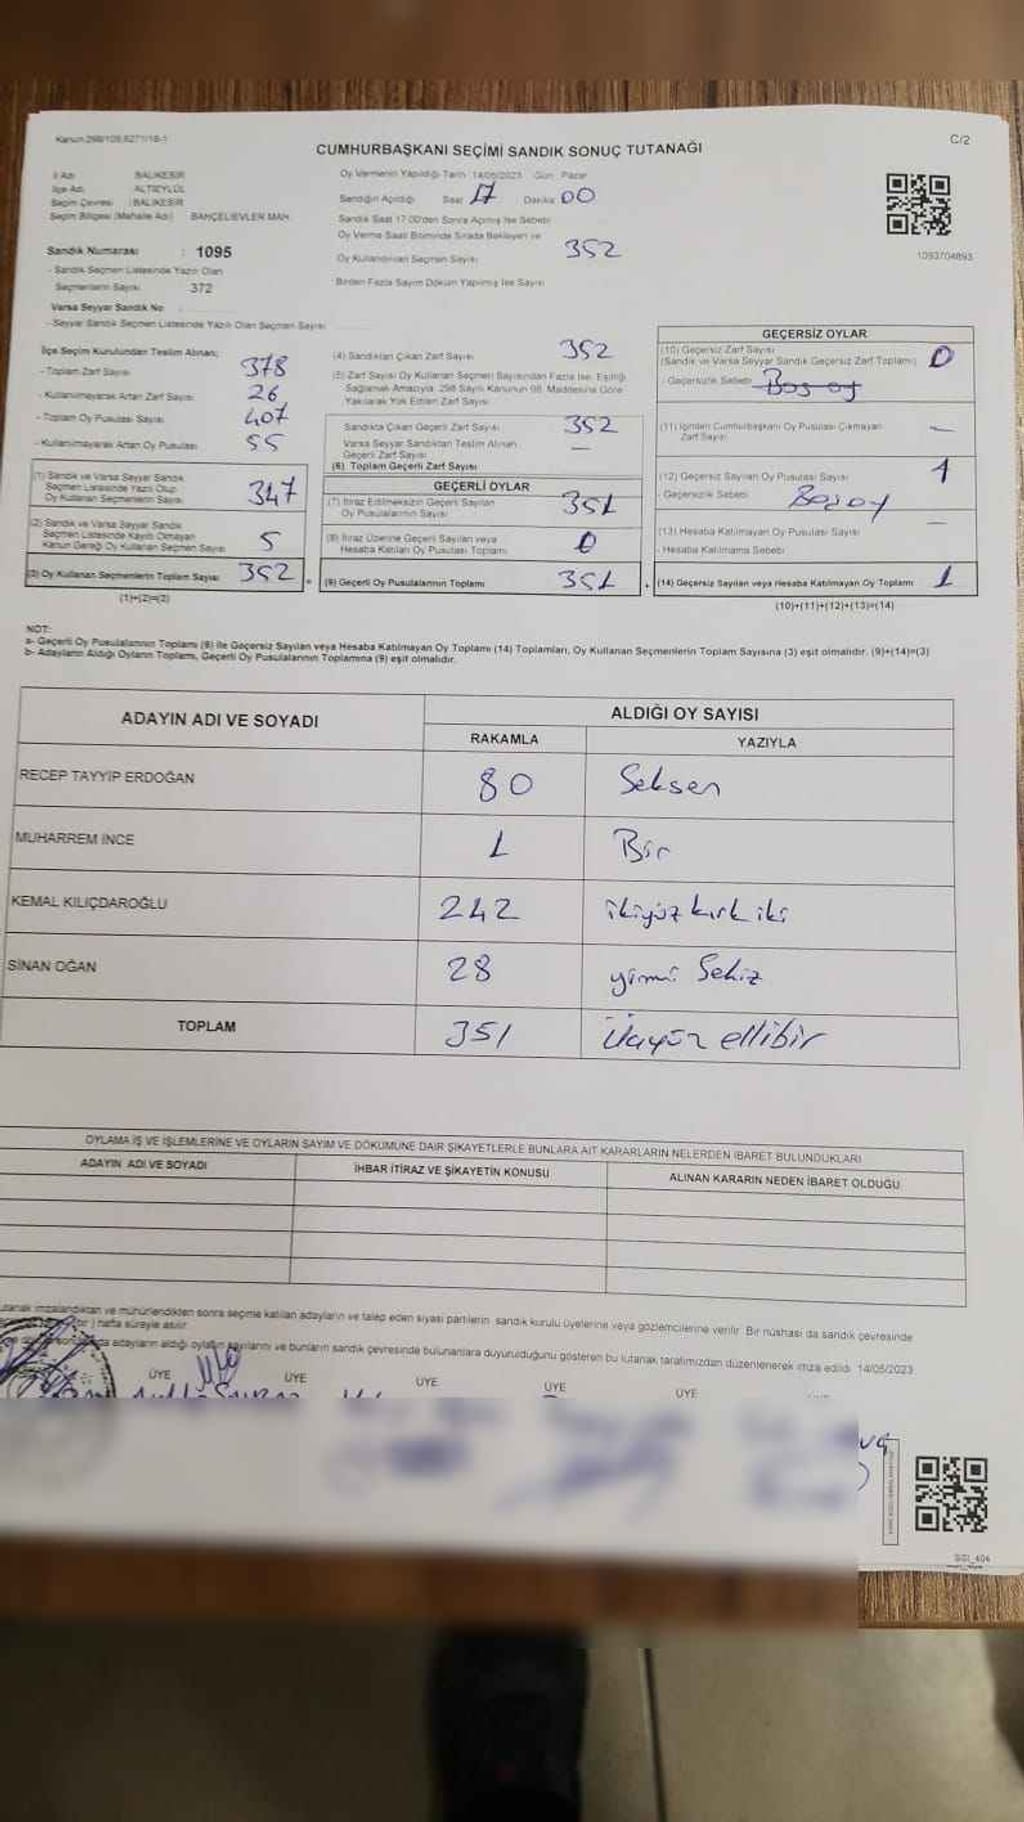 Kanun:298/105,6271/16-1
C/2
CUMHURBAŞKANI SEÇİMİ SANDIK SONUÇ TUTANAĞI
İl Adı BALIKESİR
İlçe Adı ALTIEYLÜL
Seçim Çevresi : BALIKESİR
Seçim Bölgesi (Mahalle Adı) BAHÇELİEVLER MAH.
Oy Vermenin Yapıldığı Tarih 14/05/2023 Gün Pazar
Sandığın Açıldığı Saat 17 Dakika 00
Sandık Saat 17.00'den Sonra Açılmış İse Sebebi
Oy Verme Saati Bitiminde Sırada Bekleyen ve
Oy Kullandırılan Seçmen Sayısı 352
Birden Fazla Sayım Döküm Yapılmış İse Sayısı
1093704893
Sandık Numarası : 1095
- Sandık Seçmen Listesinde Yazılı Olan
Seçmenlerin Sayısı 372
Varsa Seyyar Sandık No
- Seyyar Sandık Seçmen Listesinde Yazılı Olan Seçmen Sayısı
İlçe Seçim Kurulundan Teslim Alınan;
- Toplam Zarf Sayısı 378
- Kullanılmayarak Artan Zarf Sayısı 26
- Toplam Oy Pusulası Sayısı 407
- Kullanılmayarak Artan Oy Pusulası 55
(1) Sandık ve Varsa Seyyar Sandık
Seçmen Listesinde Yazılı Olup
Oy Kullanan Seçmenlerin Sayısı 347
(2) Sandık ve Varsa Seyyar Sandık
Seçmen Listesinde Kayıtlı Olmayan
Kanun Gereği Oy Kullanan Seçmen Sayısı 5
(3) Oy Kullanan Seçmenlerin Toplam Sayısı 352
(1)+(2)=(3)
(4) Sandıktan Çıkan Zarf Sayısı 352
(5) Zarf Sayısı Oy Kullanan Seçmen Sayısından Fazla İse, Eşitliği
Sağlamak Amacıyla, 298 Sayılı Kanunun 98. Maddesine Göre
Yakılarak Yok Edilen Zarf Sayısı
Sandıkta Çıkan Geçerli Zarf Sayısı 352
Varsa Seyyar Sandıktan Teslim Alınan
Geçerli Zarf Sayısı —
(6) Toplam Geçerli Zarf Sayısı
GEÇERLİ OYLAR
(7) İtiraz Edilmeksizin Geçerli Sayılan
Oy Pusulalarının Sayısı 351
(8) İtiraz Üzerine Geçerli Sayılan veya
Hesaba Katılan Oy Pusulası Toplamı 0
(9) Geçerli Oy Pusulalarının Toplamı 351
GEÇERSİZ OYLAR
(10) Geçersiz Zarf Sayısı 0
(Sandık ve Varsa Seyyar Sandık Geçersiz Zarf Toplamı)
- Geçersizlik Sebebi Boş oy
(11) İçinden Cumhurbaşkanı Oy Pusulası Çıkmayan
Zarf Sayısı —
(12) Geçersiz Sayılan Oy Pusulası Sayısı 1
- Geçersizlik Sebebi Boş oy
(13) Hesaba Katılmayan Oy Pusulası Sayısı —
- Hesaba Katılmama Sebebi
(14) Geçersiz Sayılan veya Hesaba Katılmayan Oy Toplamı 1
(10)+(11)+(12)+(13)=(14)
NOT:
a- Geçerli Oy Pusulalarının Toplamı (9) ile Geçersiz Sayılan veya Hesaba Katılmayan Oy Toplamı (14) Toplamları, Oy Kullanan Seçmenlerin Toplam Sayısına (3) eşit olmalıdır. (9)+(14)=(3)
b- Adayların Aldığı Oyların Toplamı, Geçerli Oy Pusulalarının Toplamına (9) eşit olmalıdır.
ADAYIN ADI VE SOYADI
ALDIĞI OY SAYISI
RAKAMLA YAZIYLA
RECEP TAYYİP ERDOĞAN 80 Seksen
MUHARREM İNCE 1 Bir
KEMAL KILIÇDAROĞLU 242 ikiyüz kırk iki
SİNAN OĞAN 28 yirmi Sekiz
TOPLAM 351 Üçyüz ellibir
OYLAMA İŞ VE İŞLEMLERİNE VE OYLARIN SAYIM VE DÖKÜMÜNE DAİR ŞİKAYETLERLE BUNLARA AİT KARARLARIN NELERDEN İBARET BULUNDUKLARI
ADAYIN ADI VE SOYADI İHBAR İTİRAZ VE ŞİKAYETİN KONUSU ALINAN KARARIN NEDEN İBARET OLDUĞU
imzalandıktan ve mühürlendikten sonra seçime katılan adayların ve talep eden siyasi partilerin sandık kurulu üyelerine veya gözlemcilerine verilir. Bir nüshası da sandık çevresinde
hafta süreyle asılır
adayların aldığı oyların sayılarını ve bunların sandık çevresinde bulunanlara duyurulduğunu gösteren bu tutanak tarafımızdan düzenlenerek imza edildi. 14/05/2023
ÜYE ÜYE ÜYE ÜYE ÜYE